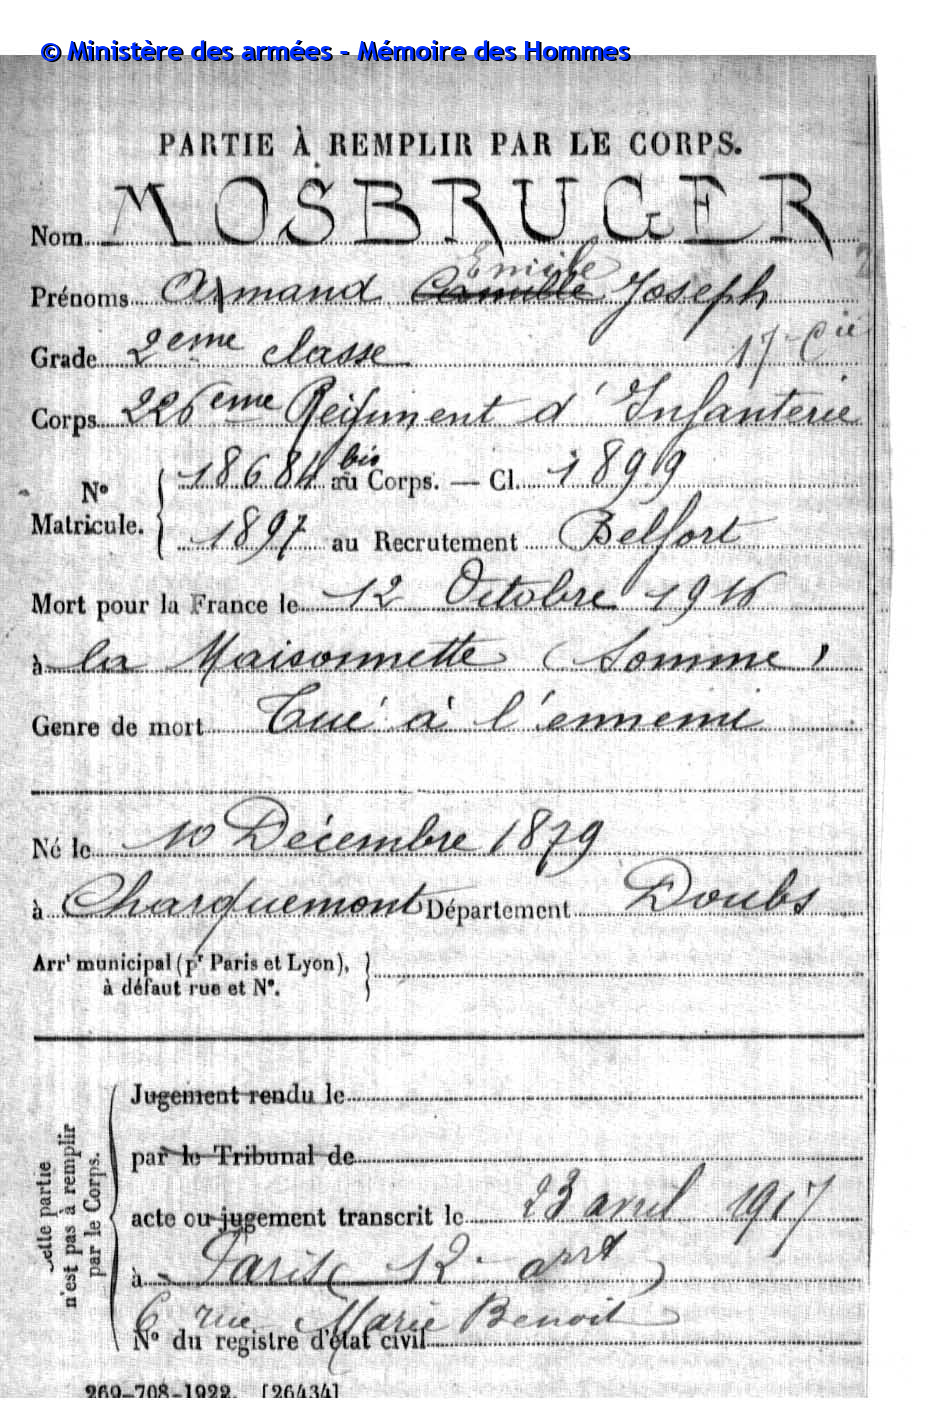 © Ministère des armées - Mémoire des Hommes
PARTIE À REMPLIR PAR LE CORPS.
Nom MOSBRUGER
Emile
Prénoms Armand Camille Joseph
Grade 2eme classe 17e Cie
Corps 226eme Régiment d'Infanterie
N° Matricule. 18684 bis au Corps. — Cl. 1899
1897 au Recrutement Belfort
Mort pour la France le 12 Octobre 1916
à la Maisonnette (Somme)
Genre de mort Tué à l'ennemi
Né le 10 Décembre 1879
à Charquemont Département Doubs
Arrt municipal (pr Paris et Lyon),
à défaut rue et N°.
Cette partie
n'est pas à remplir
par le Corps.
Jugement rendu le
par le Tribunal de
acte ou jugement transcrit le 23 avril 1917
à Paris 12e arrt
6 rue Marie Benoit
N° du registre d'état civil
269-708-1922. [26434]